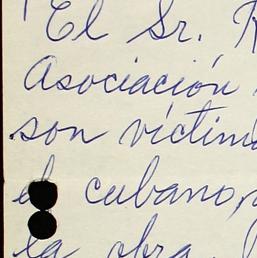 El Sr.
Asociación
son víctima
el cubano,
la obra